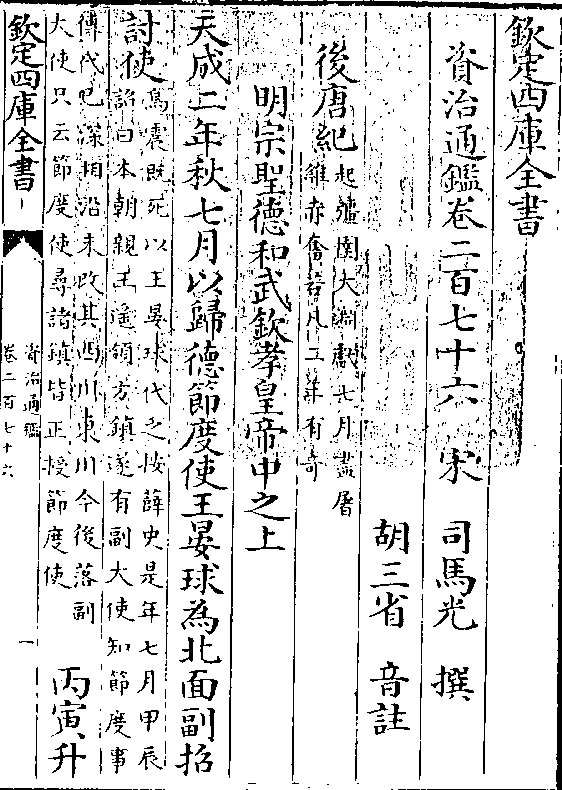 欽定四庫全書
資治通鑑卷二百七十六 宋 司馬光 撰
胡三省 音註
後唐紀起彊圉大淵獻七月盡屠
維赤奮若凡二年有奇
明宗聖德和武欽孝皇帝中之上
天成二年秋七月以歸德節度使王晏球為北面副招
討使烏震既死以王晏球代之按薛史是年七月甲辰
詔曰本朝親王遙領方鎮遂有副大使知節度事
傳代已深相沿未改其西川東川今後落副
大使只云節度使尋諸鎮皆正授節度使
丙寅升
欽定四庫全書
資治通鑑
卷二百七十六
一